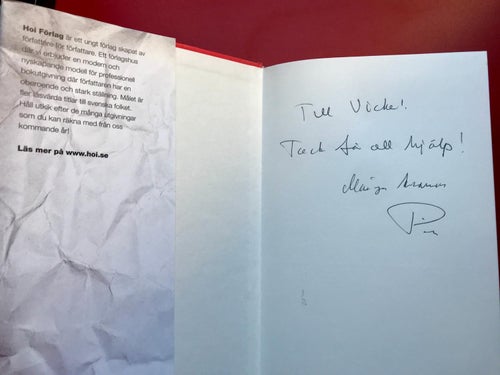 Hoi Förlag är ett ungt förlag skapat av
författare för författare. Ett förlagshus
där vi erbjuder en modern och
nyskapande modell för professionell
bokutgivning där författaren har en
oberoende och stark ställning. Målet är
fler läsvärda titlar till svenska folket.
Håll utkik efter de många utgivningar
som du kan räkna med från oss
kommande år!
Läs mer på www.hoi.se
Till Vicke!
Tack för all hjälp!
Många kramar